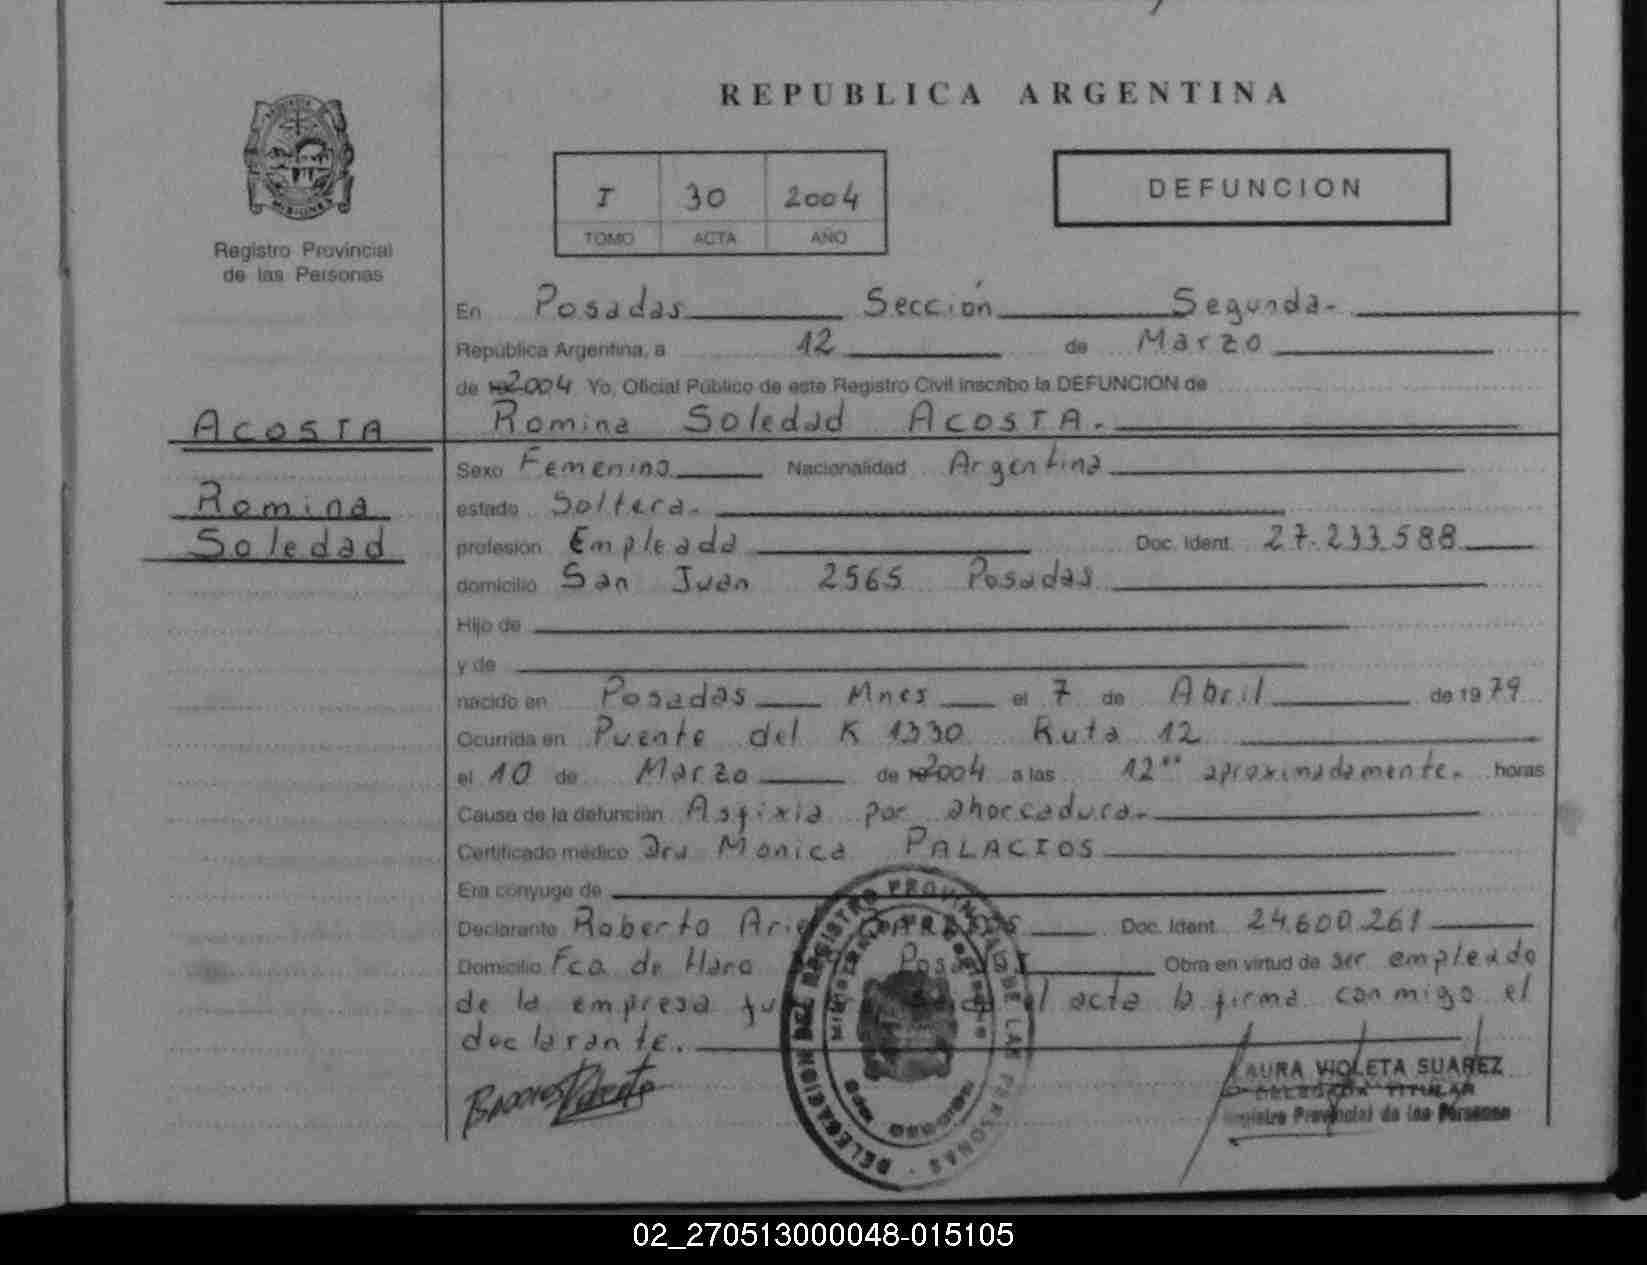 REPUBLICA ARGENTINA
MISIONES
Registro Provincial
de las Personas
I 30 2004
TOMO ACTA AÑO
DEFUNCION
En Posadas Sección Segunda-
República Argentina, a 12 de Marzo
de 2004 Yo, Oficial Público de este Registro Civil inscribo la DEFUNCION de
Acosta
Romina Soledad Acosta.
Romina
Soledad
Sexo Femenino Nacionalidad Argentina
estado Soltera.
profesión Empleada Doc. Ident. 27.233.588
domicilio San Juan 2565 Posadas
Hijo de
y de
nacido en Posadas Mnes el 7 de Abril de 1979
Ocurrida en Puente del K 1330 Ruta 12
el 10 de Marzo de 2004 a las 12°° aproximadamente. horas
Causa de la defunción Asfixia por ahorcadura.
Certificado médico Dra Monica PALACIOS
Era cónyuge de
Declarante Roberto Doc. Ident. 24.600.261
Domicilio Fco. de Haro Obra en virtud de ser empleado
de la empresa el acta la firma conmigo el
declarante.
DELEGACION DEL REGISTRO PROVINCIAL DE LAS PERSONAS
LAURA VIOLETA SUAREZ
DELEGADA TITULAR
Registro Provincial de las Personas
02_270513000048-015105